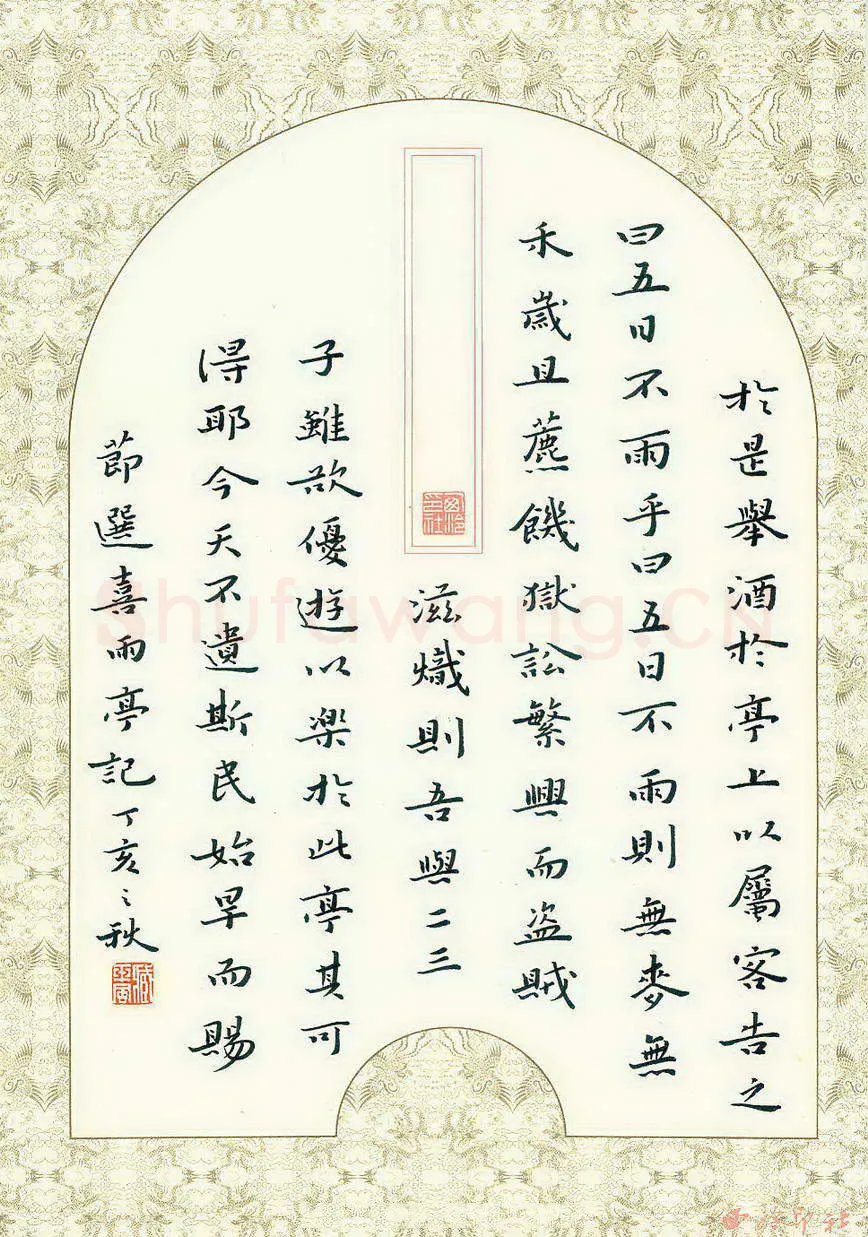 於是舉酒於亭上以屬客告之
曰五日不雨乎曰五日不雨則無麥無
禾歲且薦饑獄訟繁興而盜賊
滋熾則吾與二三
子雖欲優遊以樂於此亭其可
得耶今天不遺斯民始旱而賜
節選喜雨亭記丁亥之秋
西泠印社
Shufawang.CN
西泠印社